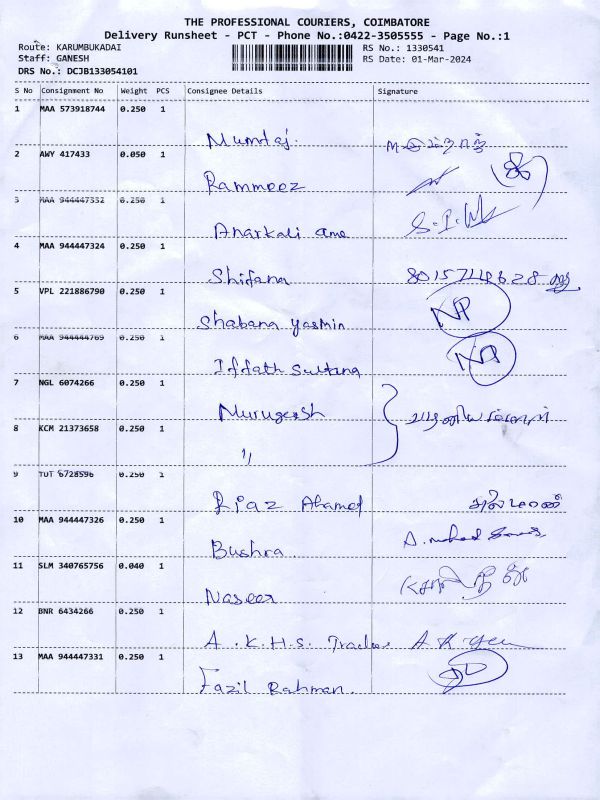 THE PROFESSIONAL COURIERS, COIMBATORE
Delivery Runsheet - PCT - Phone No.:0422-3505555 - Page No.:1
Route: KARUMBUKADAI RS No.: 1330541
Staff: GANESH RS Date: 01-Mar-2024
DRS No.: DCJB133054101
S No Consignment No Weight PCS Consignee Details Signature
1 MAA 573918744 0.250 1
Mumtaj.
2 AWY 417433 0.050 1
Rammeez
3 MAA 944447332 0.250 1
Anarkali ame
4 MAA 944447324 0.250 1
Shifana 8015714628
5 VPL 221886790 0.250 1
Shabana Yasmin NP
6 MAA 944444769 0.250 1
Iffath Sultana NP
7 NGL 6074266 0.250 1
Murugesh
8 KCM 21373658 0.250 1
"
9 TUT 6728596 0.250 1
Riaz Ahamed
10 MAA 944447326 0.250 1
Bushra
11 SLM 340765756 0.040 1
Naseer
12 BNR 6434266 0.250 1
A.K.H.S. Trades
13 MAA 944447331 0.250 1
Fazil Rahman.